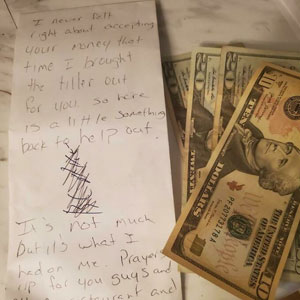 I never felt
right about accepting
your money that
time I brought
the tiller out
for you. so here
is a little something
back to help out.
It's not much
but it's what I
had on me. Prayers
up for you guys and
restaurant and
10
20
20